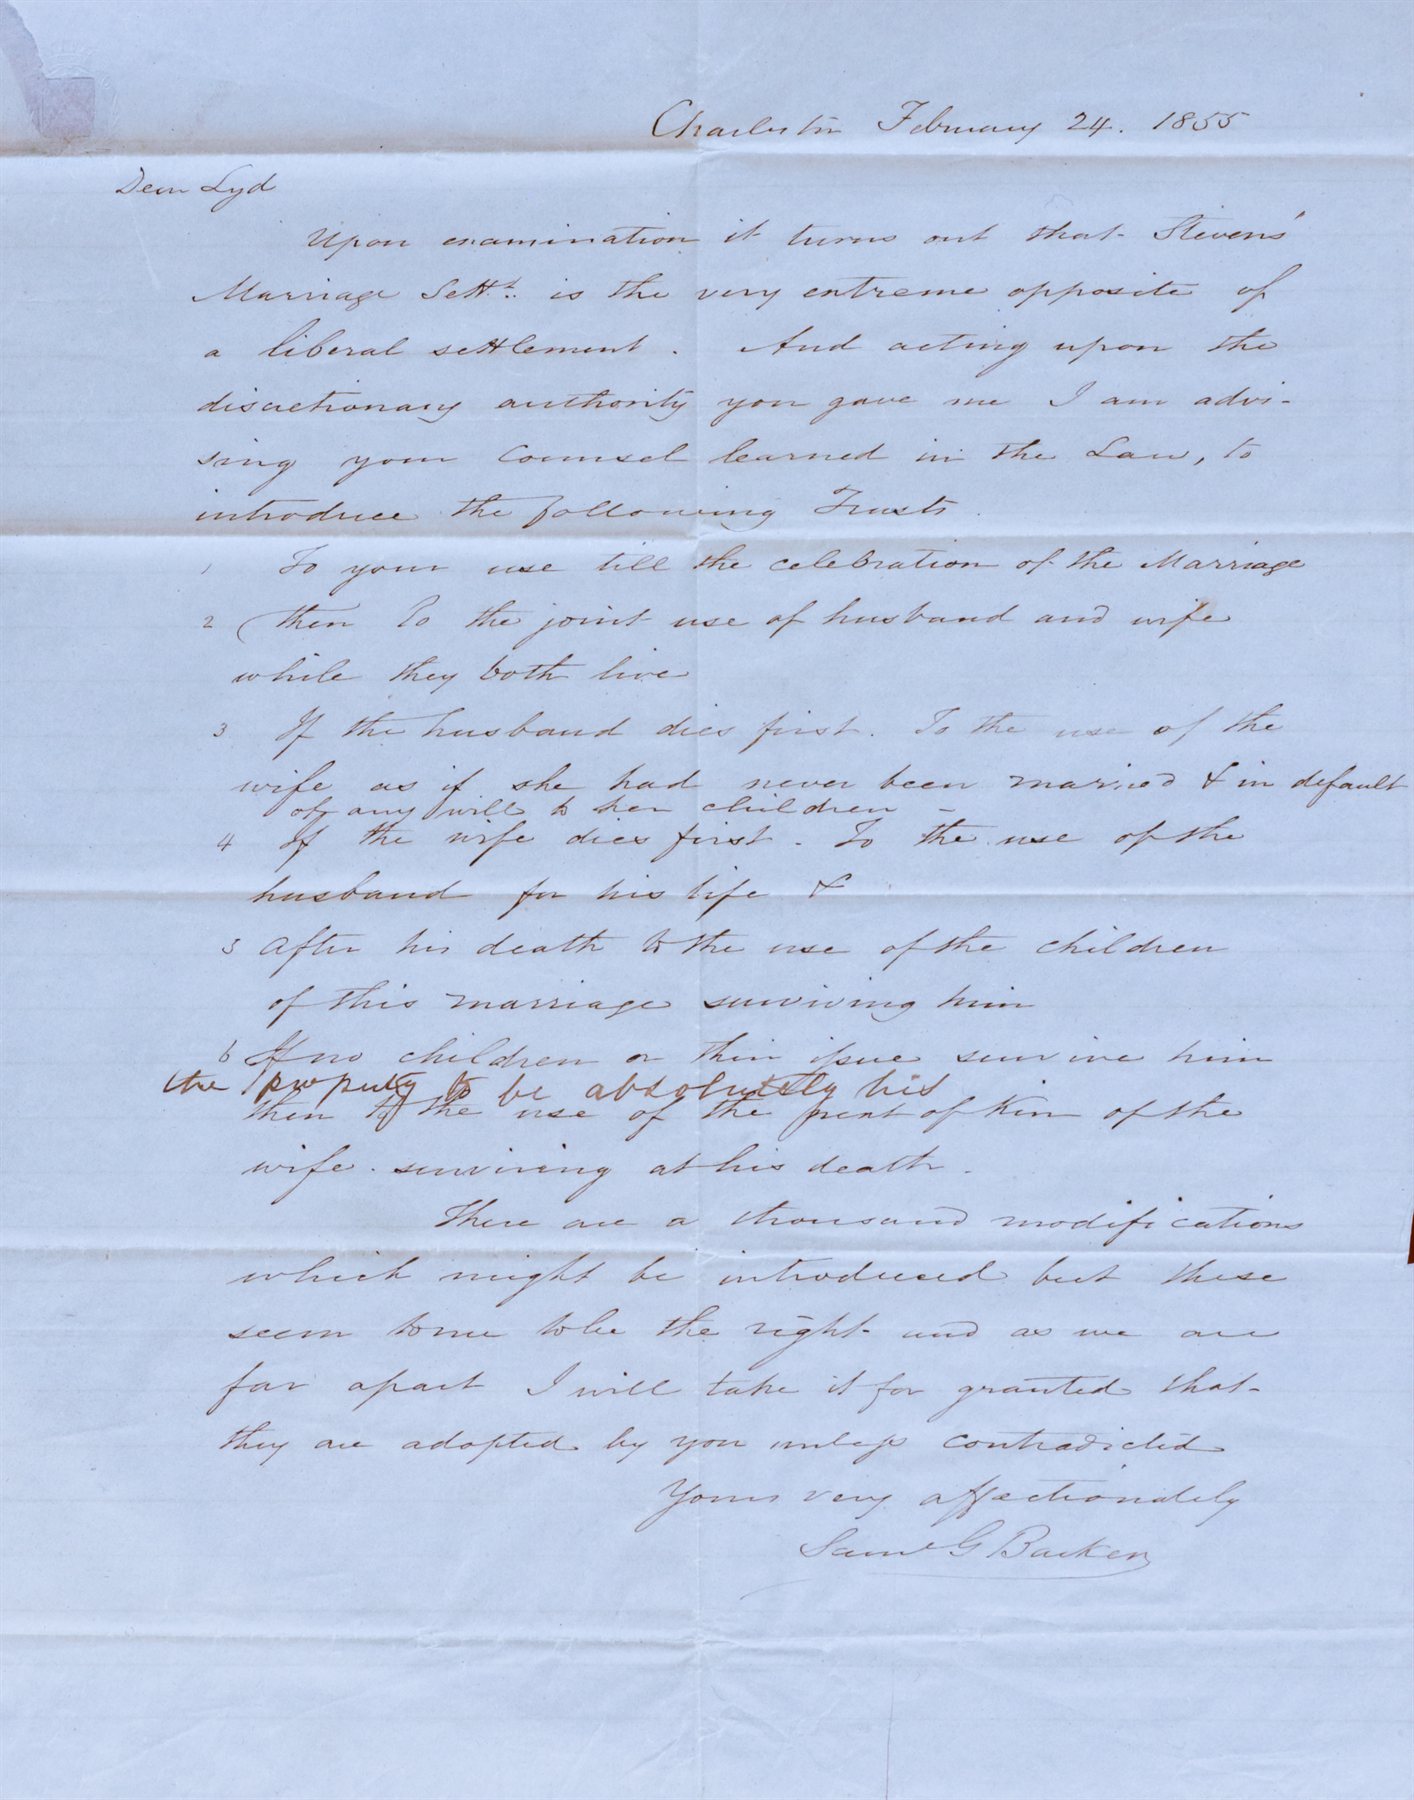 Charleston February 24. 1855
Dear Lyd
Upon examination it turns out that Stevens'
Marriage Settt. is the very extreme opposite of
a liberal settlement. And acting upon the
discretionary authority you gave me I am advi-
sing your Counsel learned in the Law, to
introduce the following Trusts.
1 To your use till the celebration of the Marriage
2 then to the joint use of husband and wife
while they both live
3 If the husband dies first. To the use of the
wife as if she had never been married & in default
of any will to her children -
4 If the wife dies first. To the use of the
husband for his life &
5 After his death to the use of the children
of this marriage surviving him
6 If no children or their issue survive him
the property to be absolutely his
then to the use of the next of Kin of the
wife surviving at his death.
There are a thousand modifications
which might be introduced but these
seem to me to be the right and as we are
far apart I will take it for granted that
they are adopted by you unless contradicted
Yours very affectionately
Saml G Barker